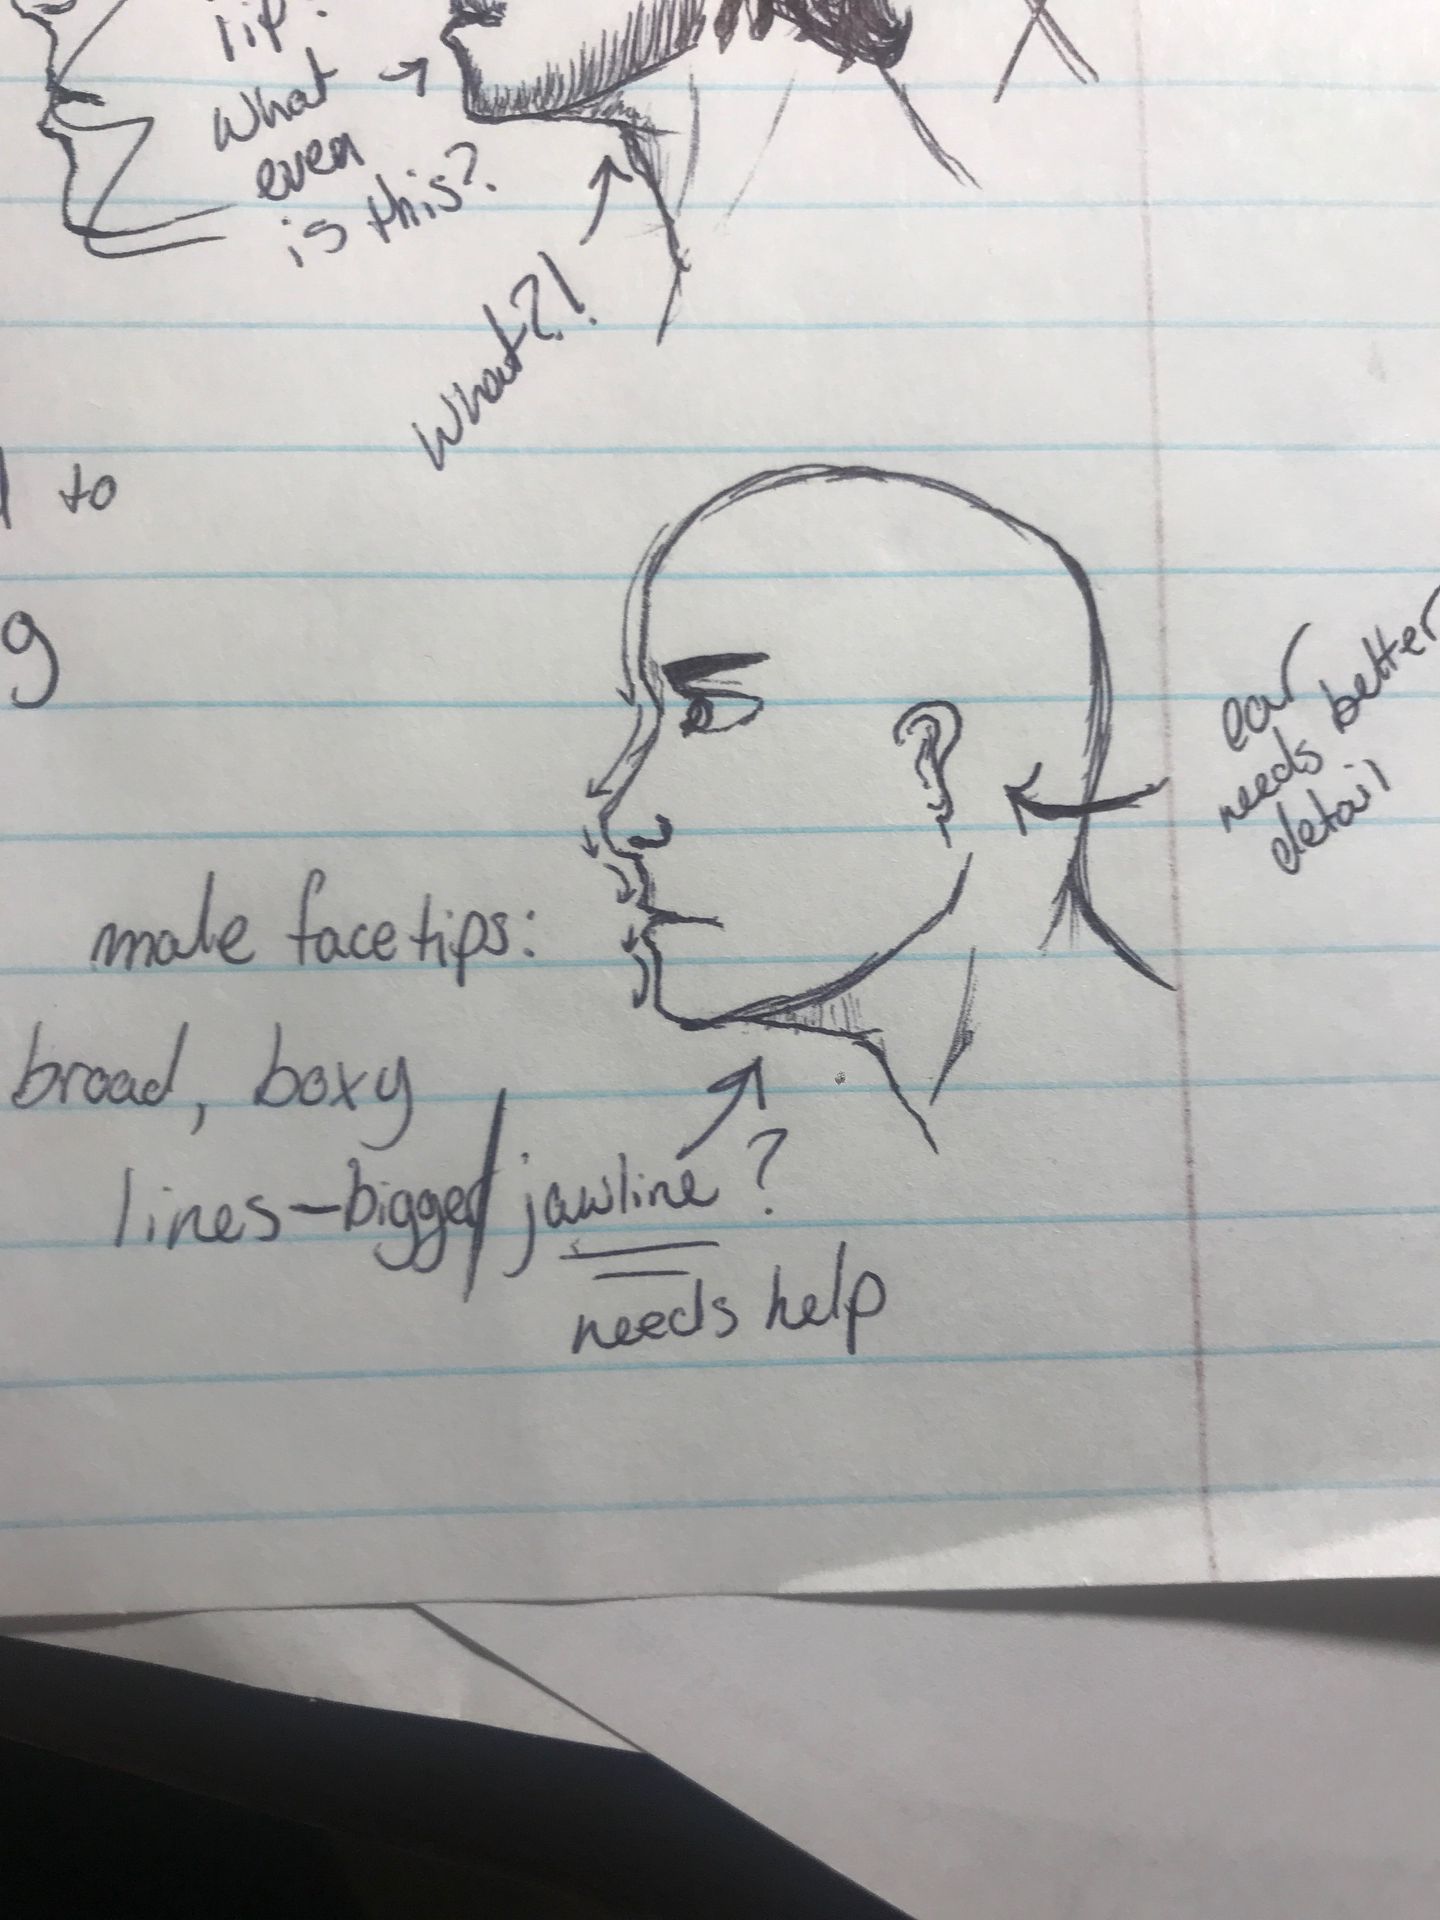 lip?
What
even
is this?
What?!
to
g
ear
needs better
detail
male face tips:
broad, boxy
lines-bigger/jawline?
needs help